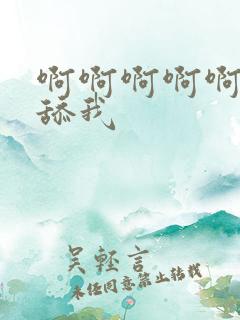 啊啊啊啊啊
舔我
吴轻言
未经同意禁止转载